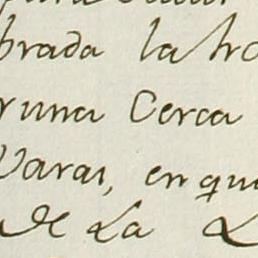 brada la
runa Cerca
Varas, en que
de La